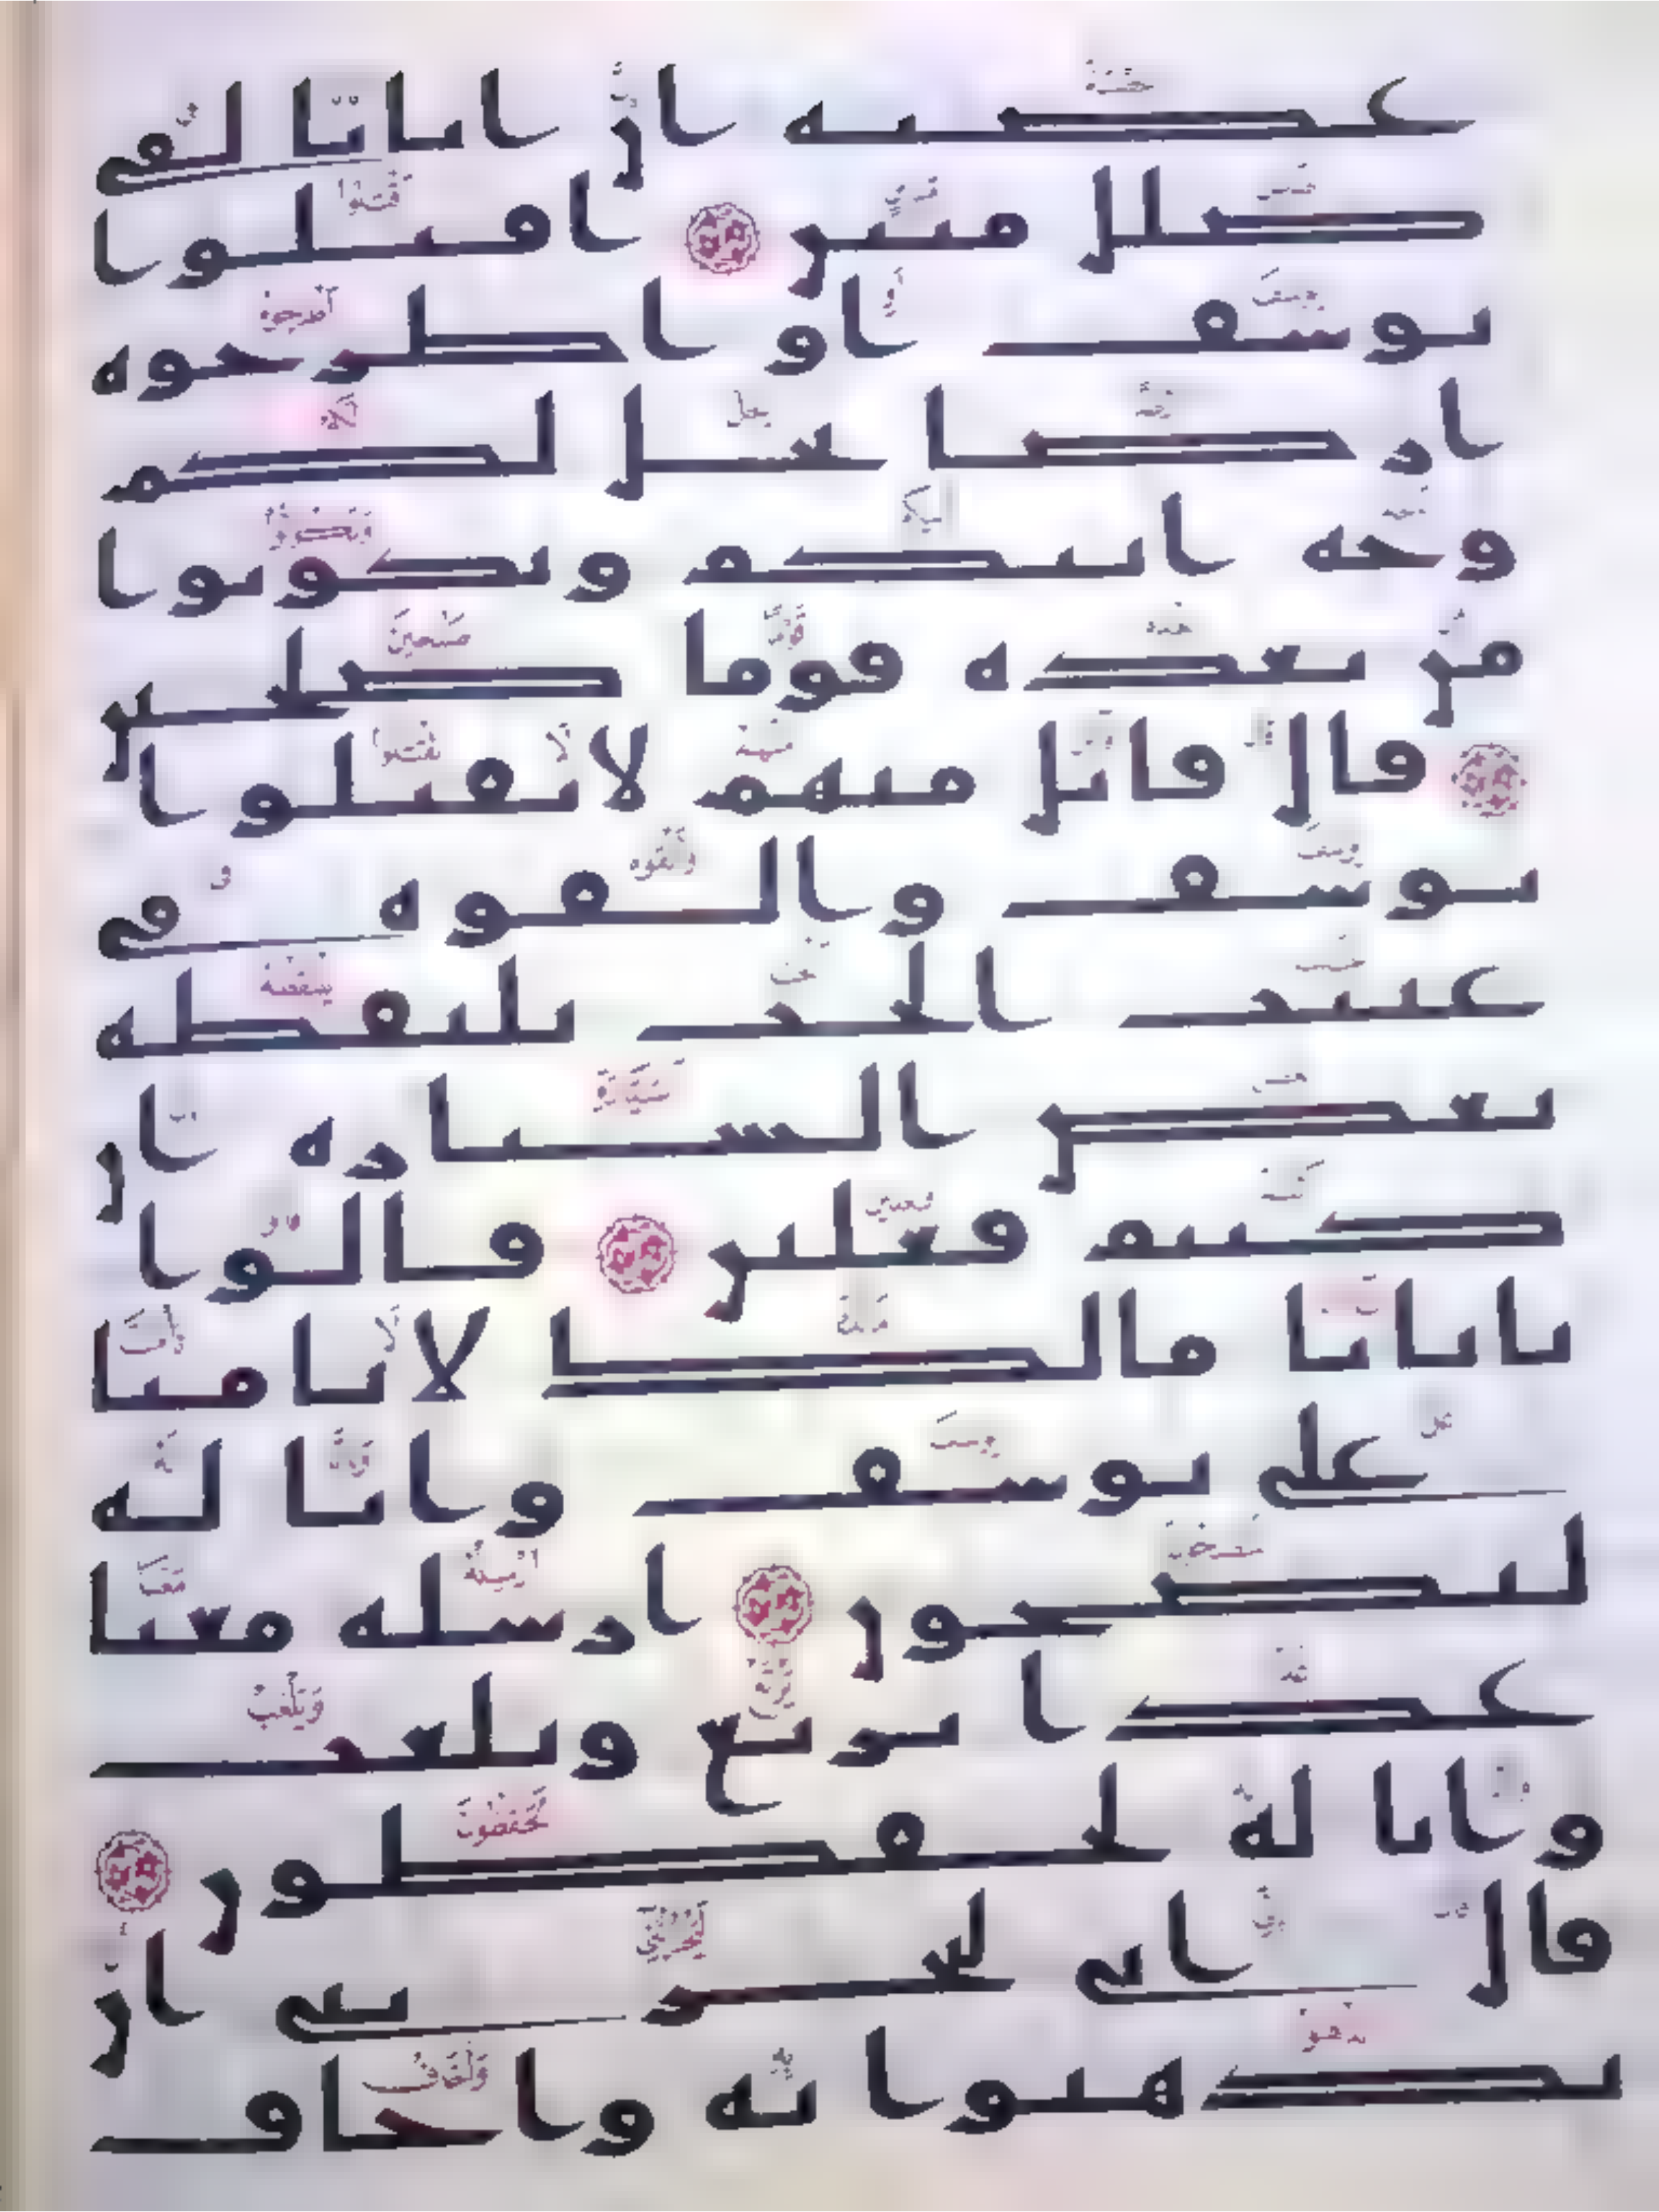 عصبه ان ابانا لفى
ضلل مبين اقتلوا
يوسف او اطرحوه
ارضا يخل لكم
وجه ابيكم وتكونوا
من بعده قوما صلحين
قال قائل منهم لا تقتلوا
يوسف والقوه فى
غيبت الجب يلتقطه
بعض السياره ان
كنتم فعلين قالوا
يابانا مالك لا تامنا
على يوسف وانا له
لنصحون ارسله معنا
غدا يرتع ويلعب
وانا له لحفظون
قال انى ليحزننى ان
تذهبوا به واخاف